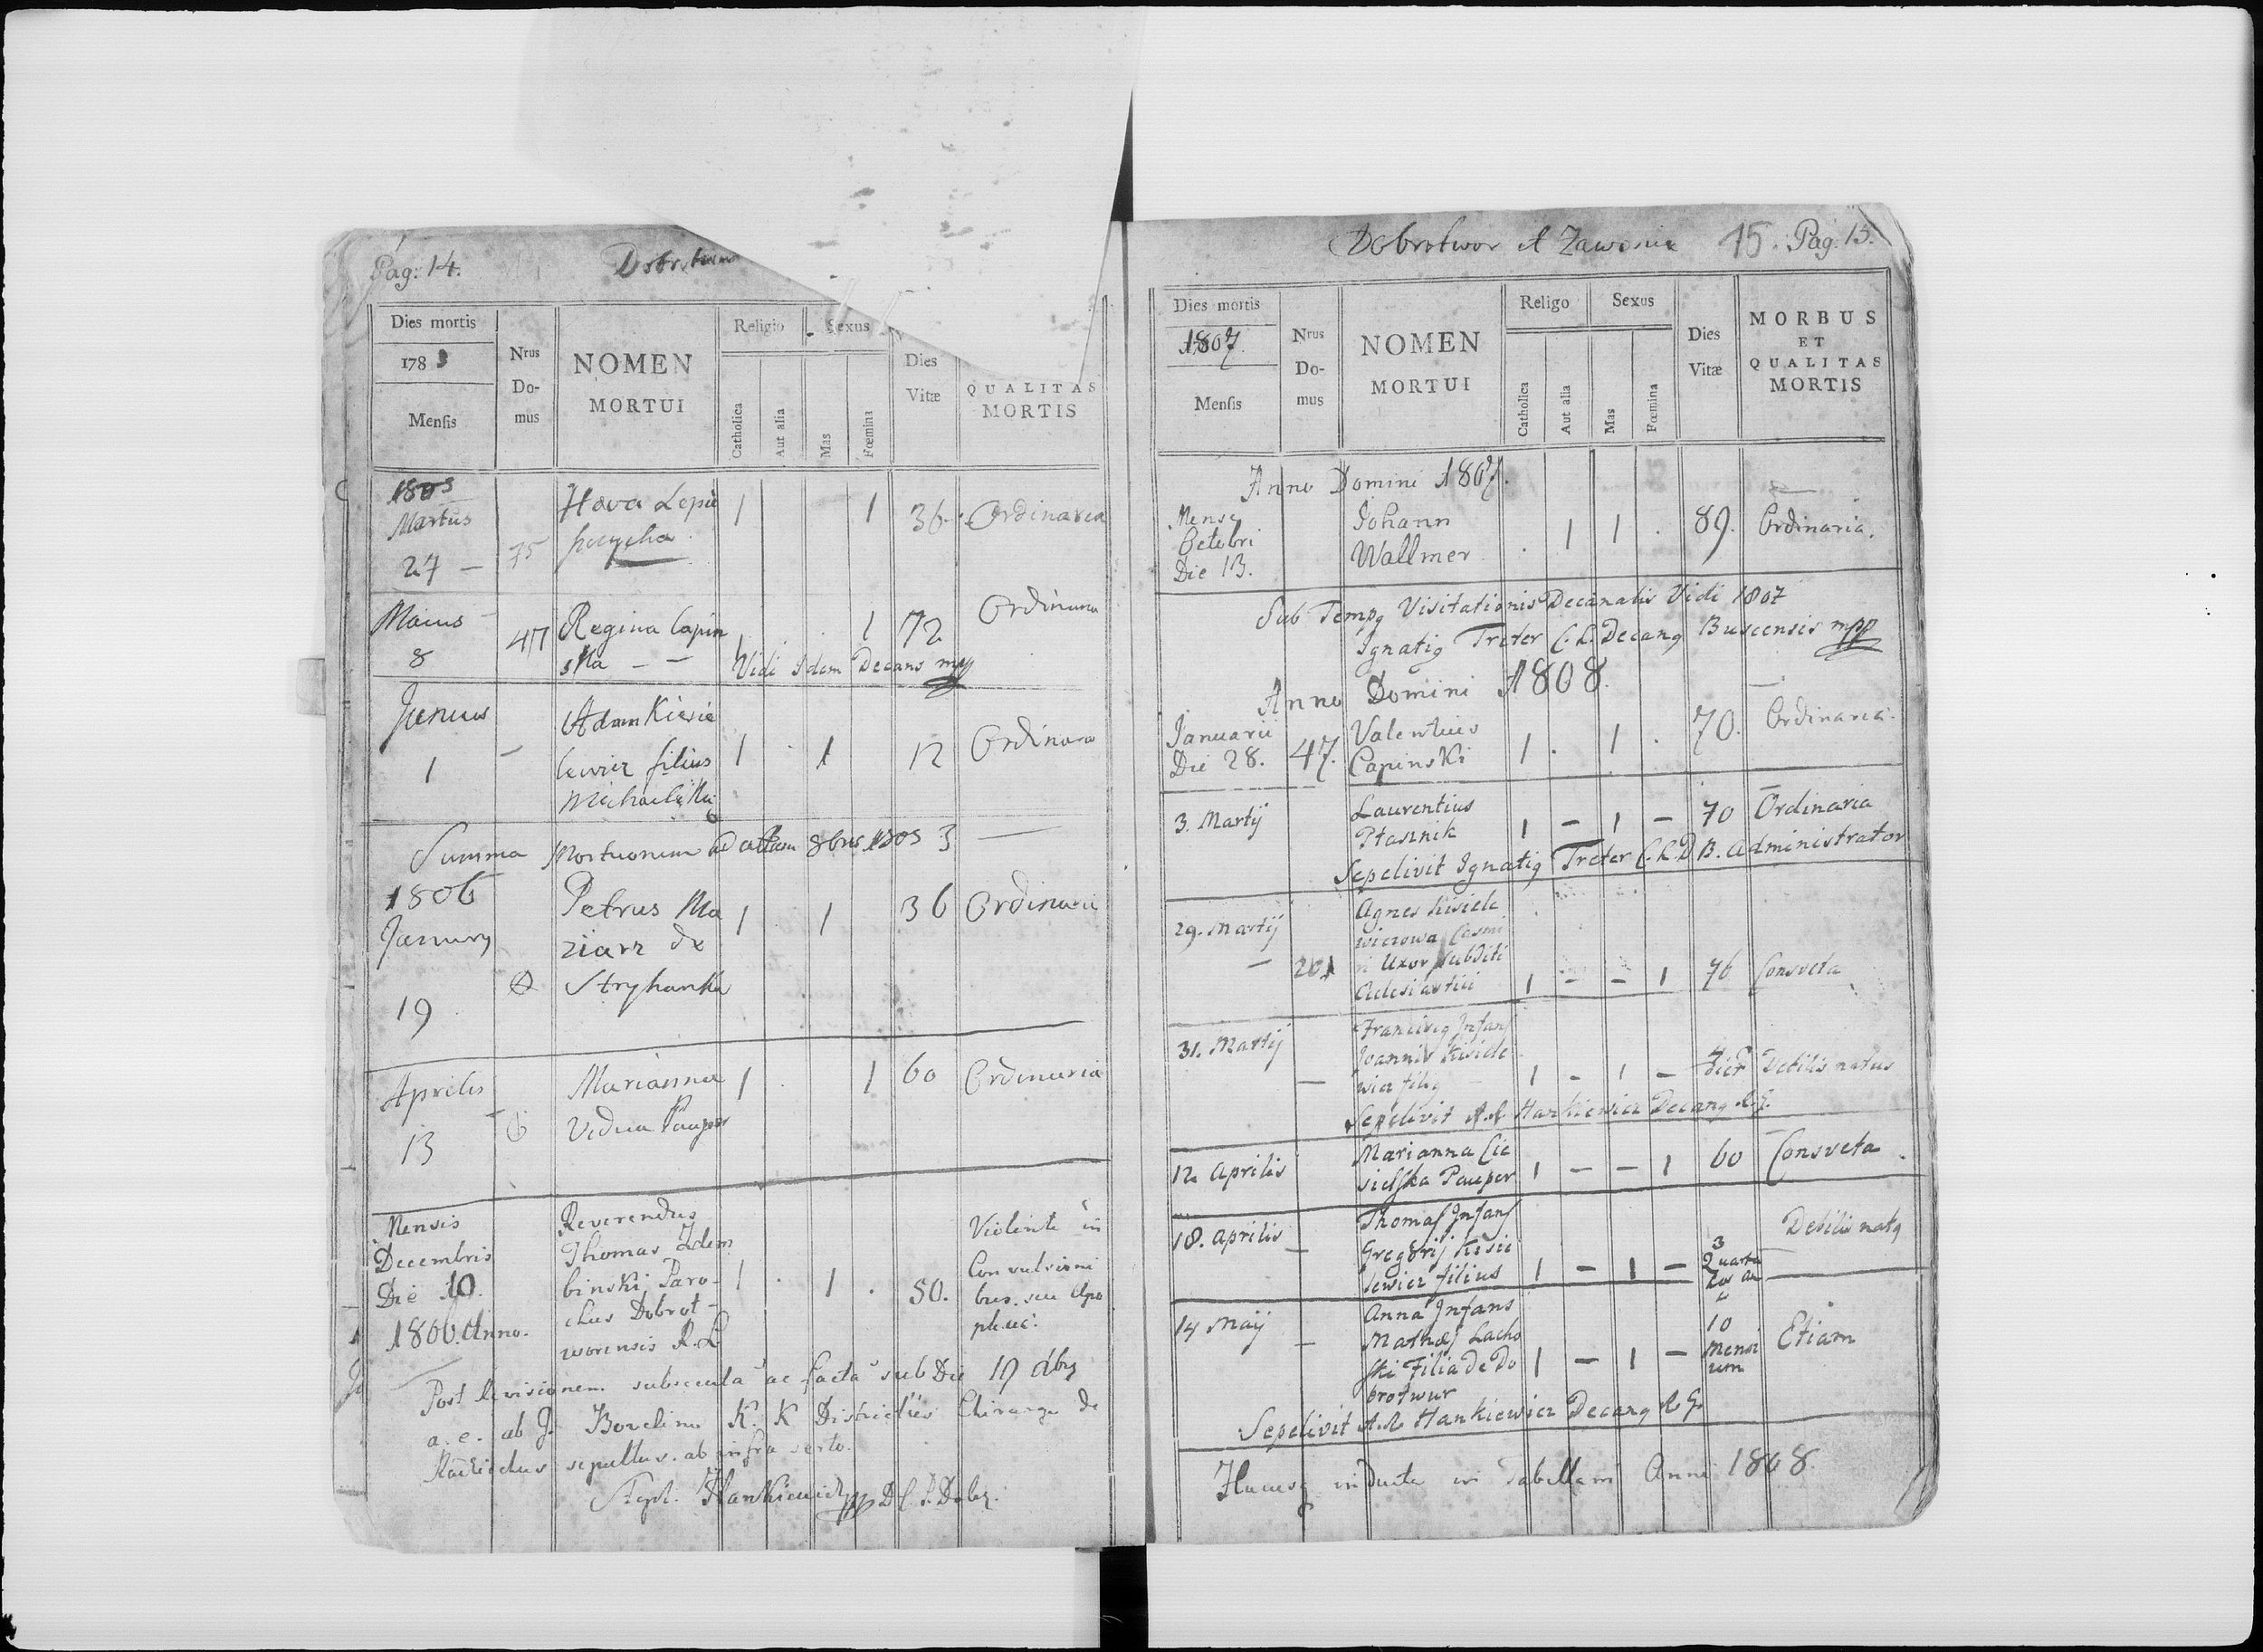 Pag: 14.
Dobrotwor
Dies mortis
1783
Mensis
Nrus
Do-
mus
NOMEN
MORTUI
Religio
Catholica
Aut alia
Sexus
Mas
Fœmina
Dies
Vitæ
QUALITAS
MORTIS
1805
Martius
27 -
75
Hava Lepie
1 1 36. Ordinaria
Maius
8
47
Regina Capin
ska - -
1 1 72 Ordinaria
Vidi idem Decans mpp
Junius
1
-
Adam Kisie
lewicz filius
Michaelis
1 . 1 12 Ordinara
Summa Mortuorum ad 8bris 1805 3 -
1806
January
19
Petrus Ma
ziarz de
Stryhanka
1 . 1 36 Ordinaria
Aprilis
13
6
Marianna
Vidua Pauper
1 . 1 60 Ordinaria
Mensis
Decembris
Die 10.
1806. Anno.
Reverendus
Thomas Idem
binski Paro-
chus Dobrot-
worensis R. L
1 . 1 . 50.
Violente in
Convulsioni
bus. seu Apo
Post Revisionem subsecuta ac facta sub Die 19
a. c. ab J. K. K Districtus Chirurgo de
sepultus. ab infra
Hankiewicz mpp
Dobrotwor et Zawonie 15. Pag: 15.
Dies mortis
1807.
Mensis
Nrus
Do-
mus
NOMEN
MORTUI
Religo
Catholica
Aut alia
Sexus
Mas
Fœmina
Dies
Vitæ
MORBUS
ET
QUALITAS
MORTIS
Anno Domini 1807.
Mense
Octobri
Die 13.
Johann
Wallmer
. 1 1 . 89. Ordinaria.
Sub Tempq Visitationis Decanalis Vidi 1807
Ignatiq Treter C. L. Decanq Buscensis mpp
Anno Domini 1808.
Januarii
Die 28.
47.
Valentius
Capinski
1 . 1 . 70. Ordinaria.
3. Martij
Laurentius
Ptasznik
1 - 1 - 70 Ordinaria
Sepelivit Ignatiq Treter C. L. D B. Administrator
29. Martij
-
201
Agnes Kisiele
wiczowa Casmi
ri Uxor subditi
1 - - 1 76 Consveta
31. Martij
-
Franciscq Infans
Joannis Kisiele
wicz filiq
1 - 1 - 4 dier Debilis natus
Sepelivit A. R. Hankiewicz Decanq R. G.
12. Aprilis
Marianna Cie
sielska Pauper
1 - - 1 60 Consveta.
18. Aprilis
-
Thomas Infans
Gregorij Kisie
lewicz filius
1 - 1 -
3
Quarta
Debilis natq
14 Maij
-
Anna Infans
Mathæi Lacho
ski Filia De Do
brotwur
1 - 1 -
10
Mensi
um
Etiam
Sepelivit A. R. Hankiewicz Decanq R. G.
Hucusq inducta in Tabellam Anni 1808.